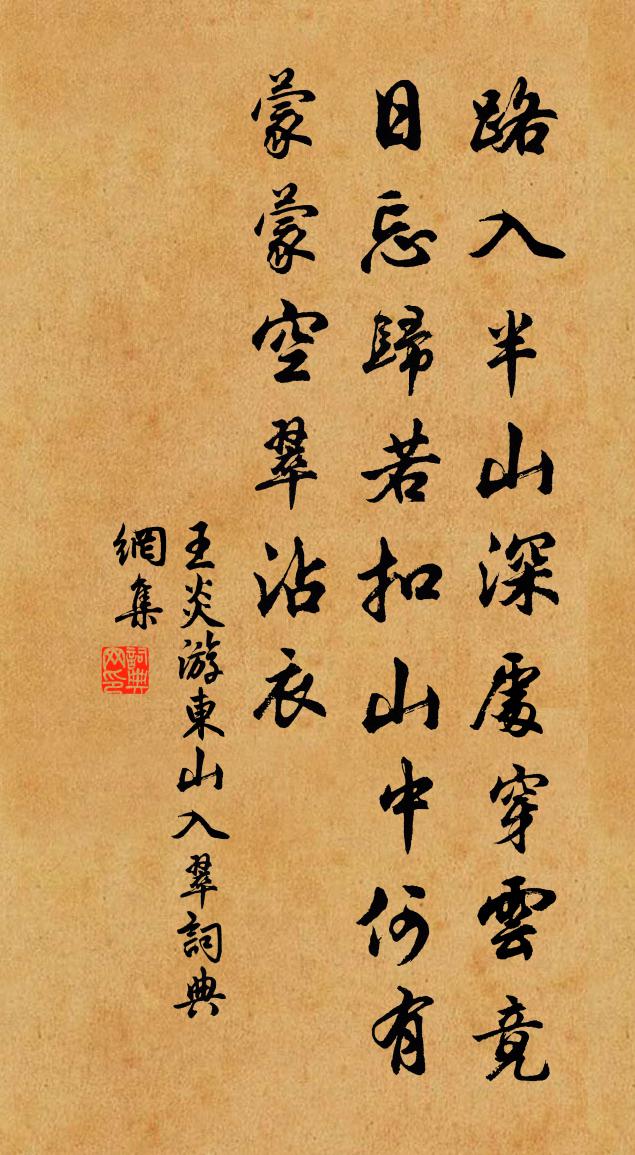 路入半山深處穿雲竟
日忘歸若扣山中何有
蒙蒙空翠沾衣
王炎游東山入翠詞典
網集
詞典
网印